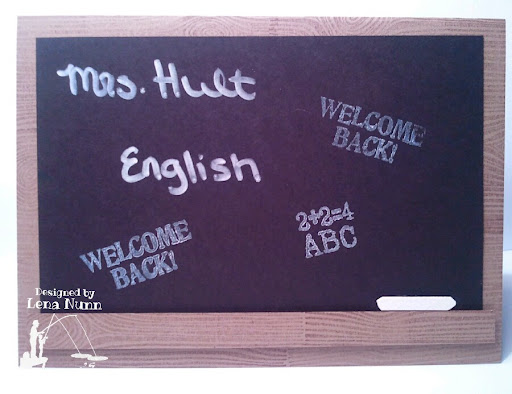 Mrs. Hult
WELCOME
BACK!
English
2+2=4
ABC
WELCOME
BACK!
Designed by
Lena Nunn